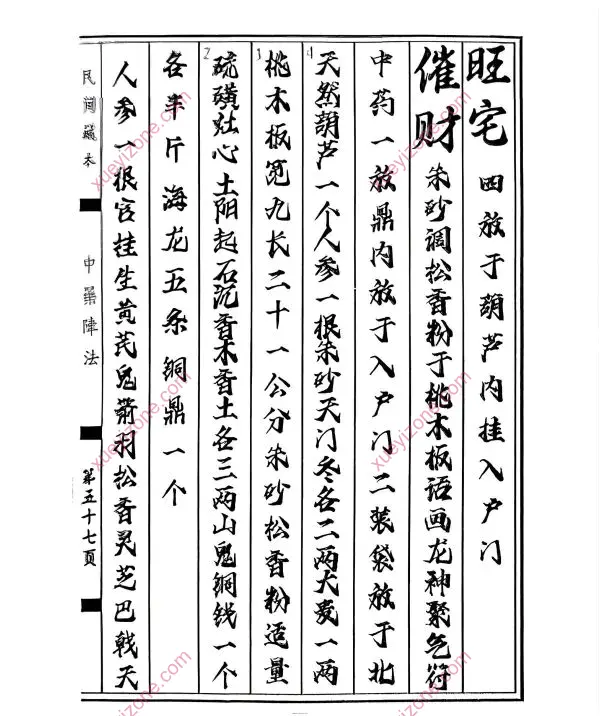 旺宅 四放于葫芦内挂入户门
催财 朱砂调松香粉于桃木板语画龙神聚气符
中药一放鼎内放于入户门二装袋放于北
4 天然葫芦一个人参一根朱砂天门冬各二两大一两
3 桃木板宽九长二十一公分朱砂松香粉适量
2 硫磺灶心土阳起石沉香木香土各三两山鬼铜钱一个
各半斤海龙五条铜鼎一个
人参一根官桂生黄芪鬼箭羽松香灵芝巴戟天
民间藏本
中藥陣法
第五十七页
xueyizone.com
xueyizone.com
xueyizone.com
xueyizone.com
xueyizone.com
xueyizone.com